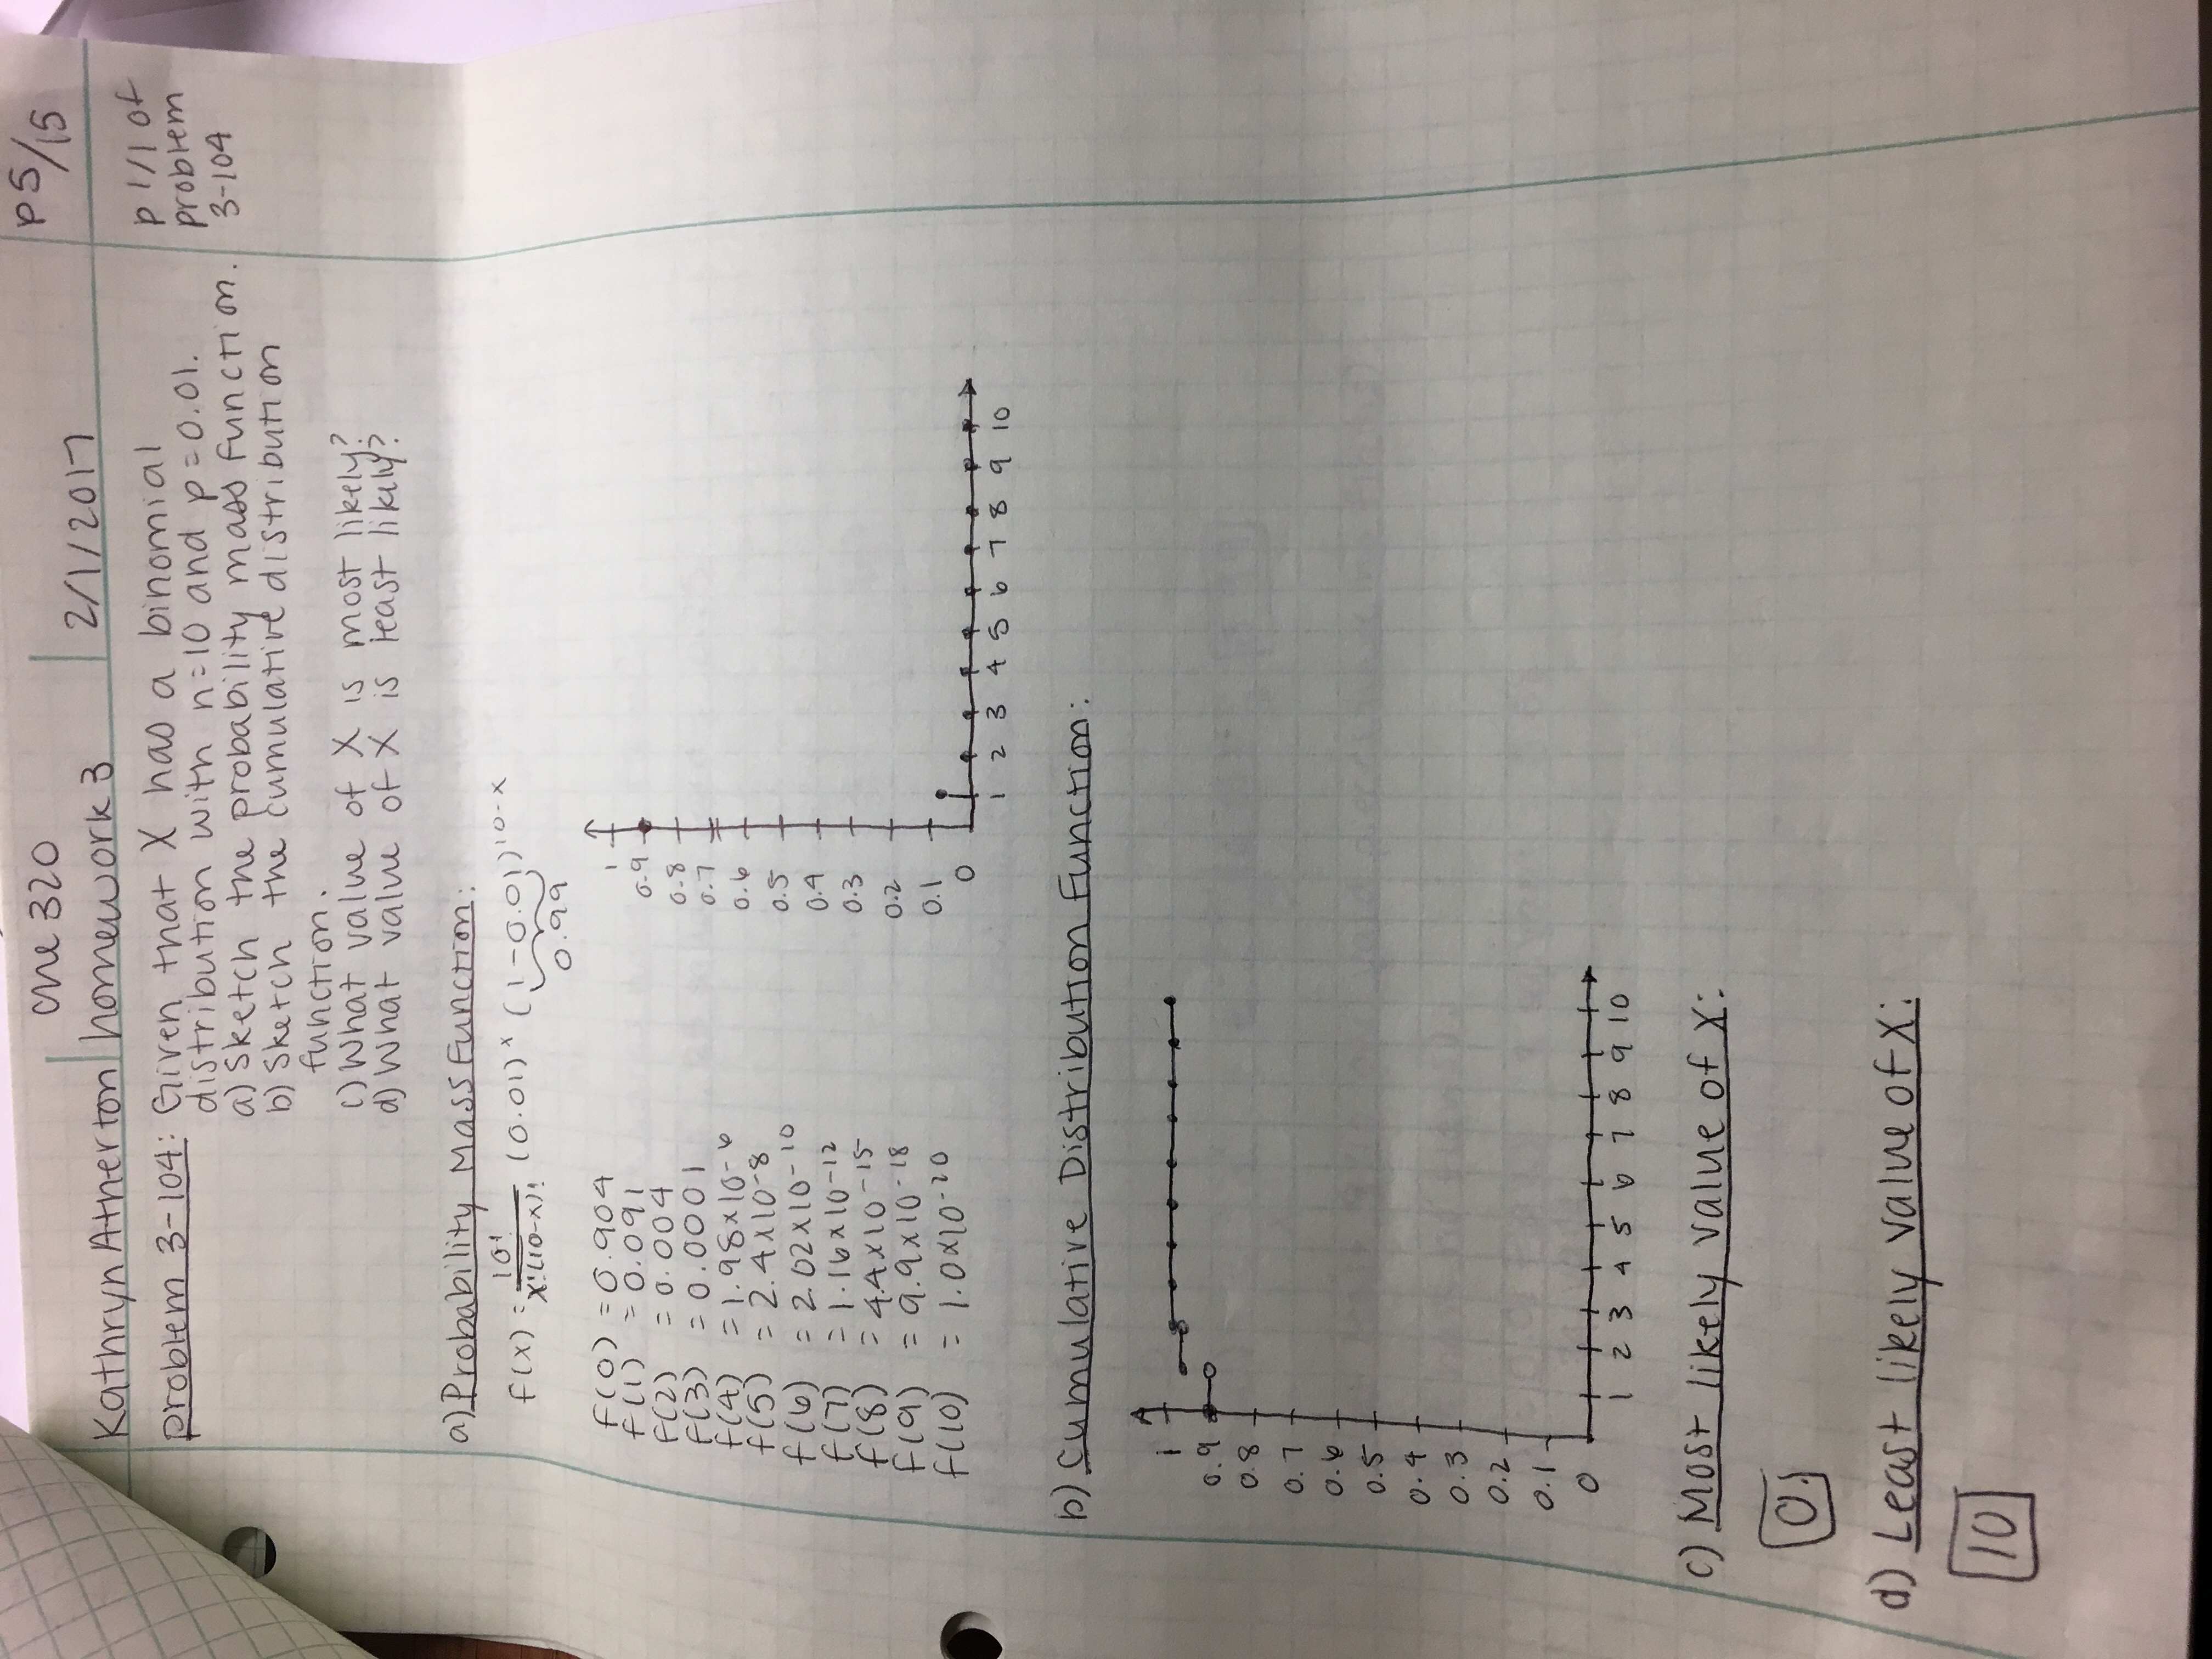 che 320
p5/15
Kathryn Atherton homework 3 2/1/2017
problem 3-104: Given that X has a binomial
distribution with n=10 and p=0.01.
a) Sketch the probability mass function.
b) Sketch the cumulative distribution
function.
c) What value of X is most likely?
d) What value of X is least likely?
p 1/1 of
problem
3-104
a) Probability Mass Function:
f(x) = 10!/x!(10-x)! (0.01)^x (1-0.01)^10-x
0.99
f(0) = 0.904
f(1) = 0.091
f(2) = 0.004
f(3) = 0.0001
f(4) = 1.98x10-6
f(5) = 2.4x10-8
f(6) = 2.02x10-10
f(7) = 1.16x10-12
f(8) = 4.4x10-15
f(9) = 9.9x10-18
f(10) = 1.0x10-20
1
0.9
0.8
0.7
0.6
0.5
0.4
0.3
0.2
0.1
0
1 2 3 4 5 6 7 8 9 10
b) Cumulative Distribution Function:
1
0.9
0.8
0.7
0.6
0.5
0.4
0.3
0.2
0.1
0
1 2 3 4 5 6 7 8 9 10
c) Most likely value of X:
0.
d) Least likely value of X:
10